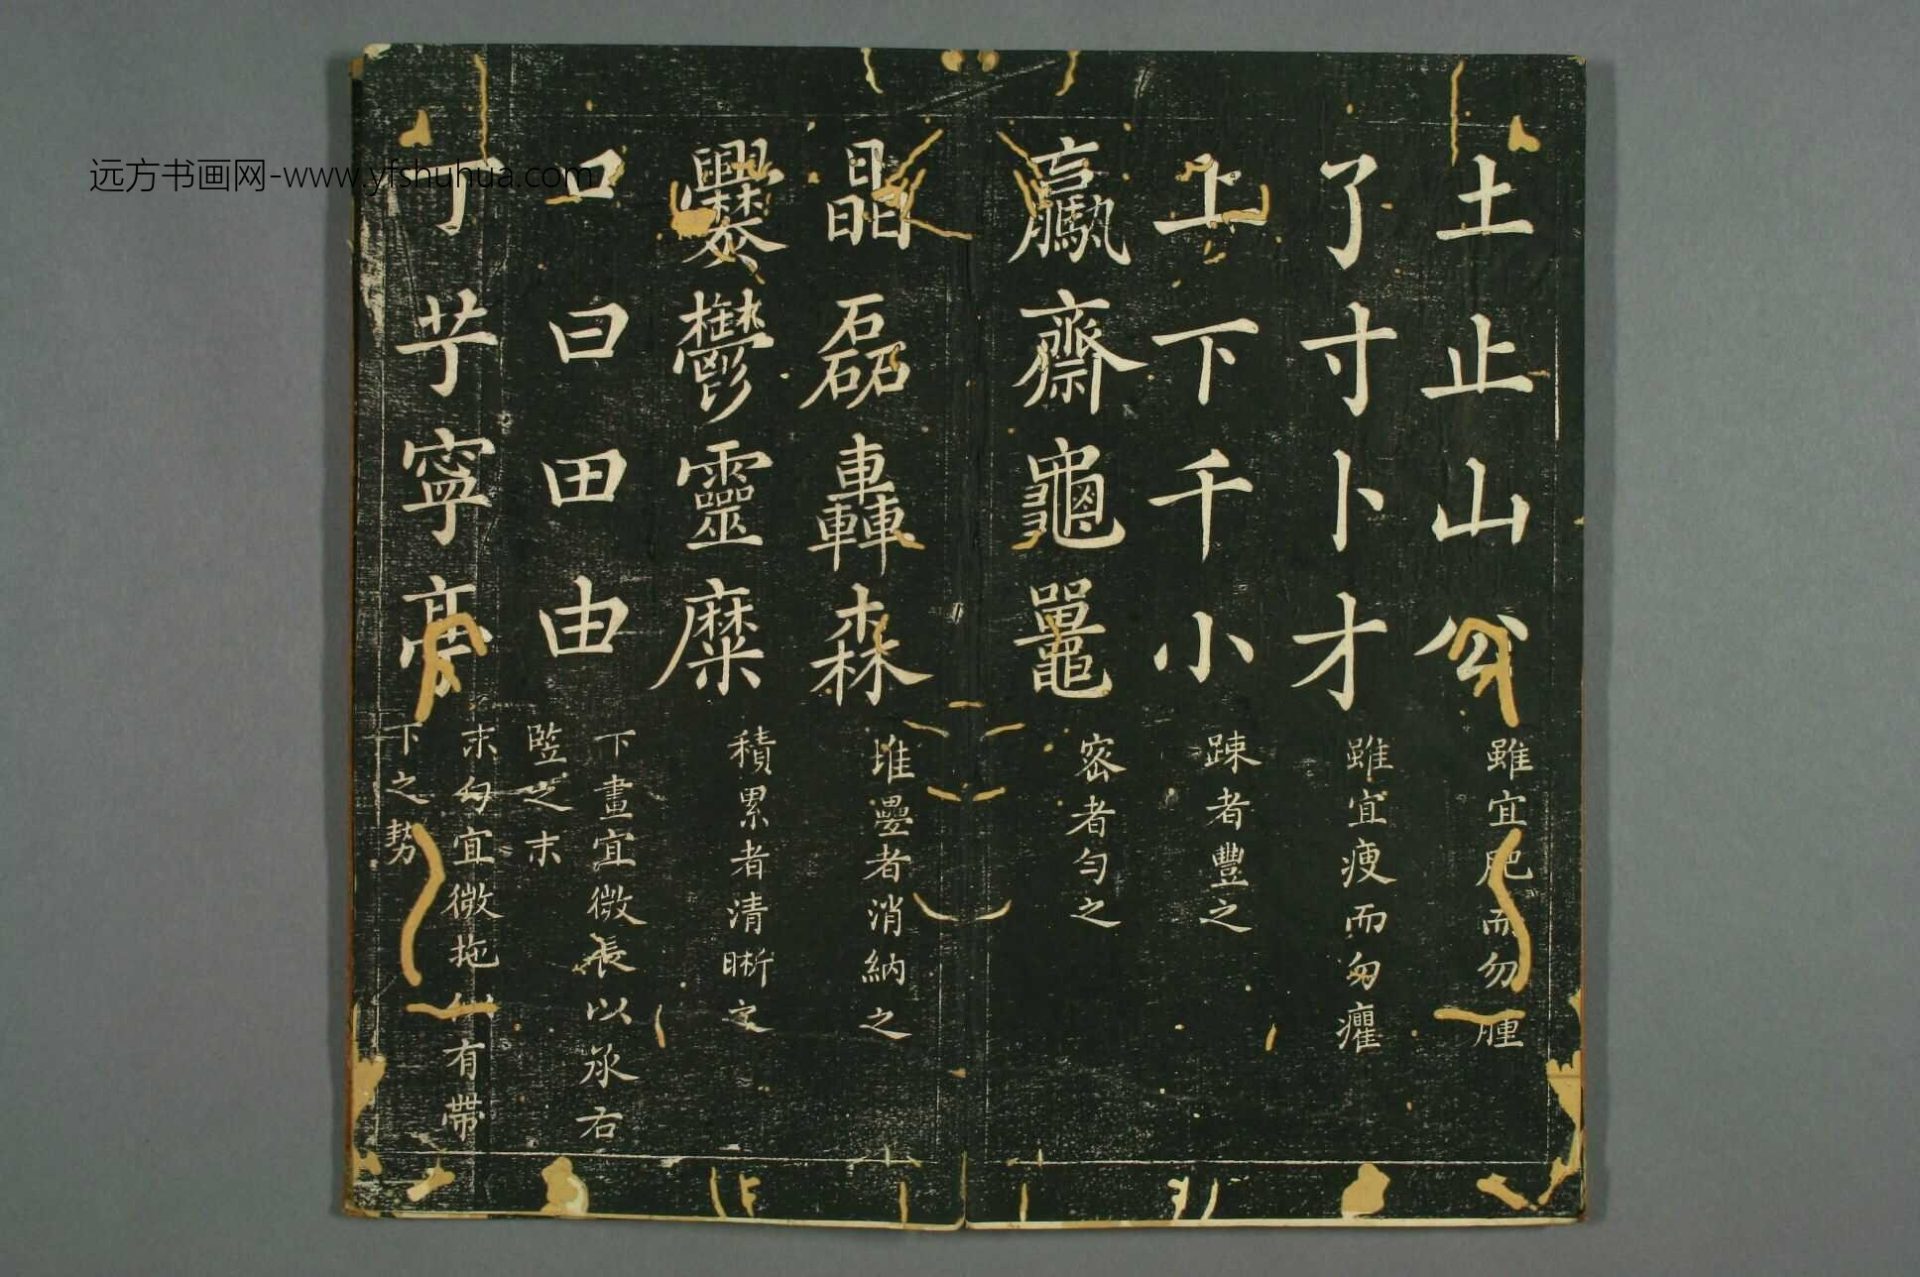 土止山公
雖宜肥而勿腫
了寸卜才
雖宜瘦而勿癯
上下千小
踈者豐之
羸齋龜鼉
密者勻之
晶磊轟森
堆疊者消納之
爨鬱靈糜
積累者清晰之
口曰田由
下畫宜微長以承右
竪之末
丁芋寧亭
末勾宜微拖有帶
下之勢
远方书画网-www.yfshuhua.com